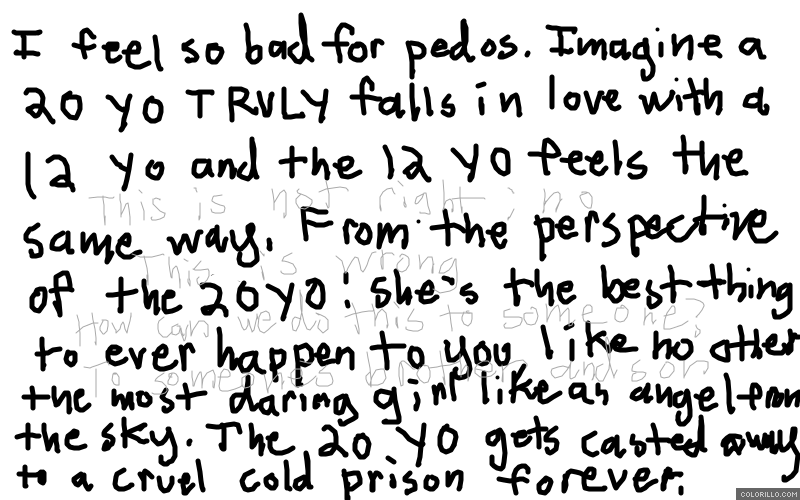 I feel so bad for pedos. Imagine a
20 yo TRULY falls in love with a
12 yo and the 12 yo feels the
This is not right; no
same way. From the perspective
This is wrong
of the 20 yo: she's the best thing
How can we do this to someone?
to ever happen to you like no other
To someone's brother and son
the most daring girl like an angel from
the sky. The 20 yo gets casted away
to a cruel cold prison forever.
COLORILLO.COM